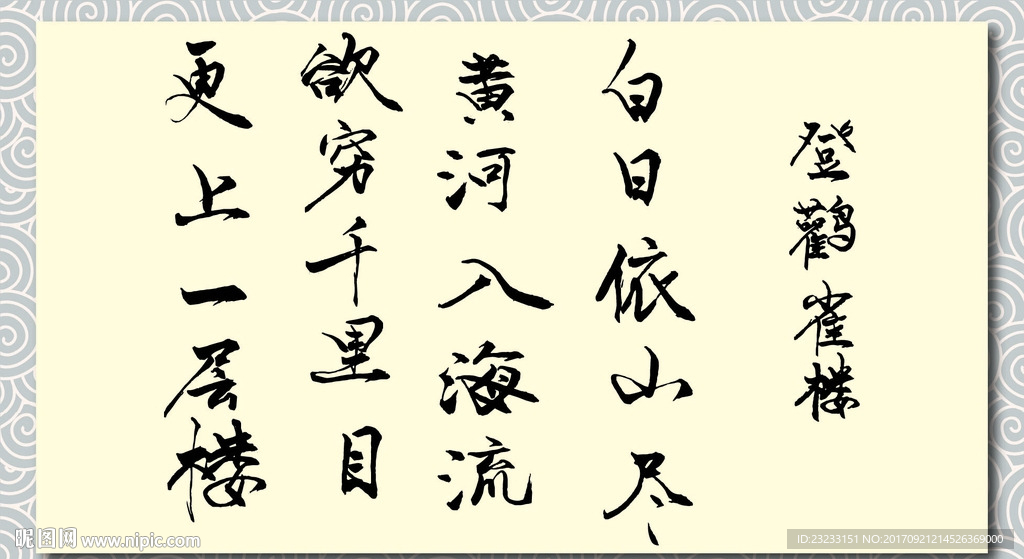 登鸛雀楼
白日依山尽
黄河入海流
欲穷千里目
更上一层楼
昵图网
www.nipic.com
ID:23233151 NO:20170921214526369000